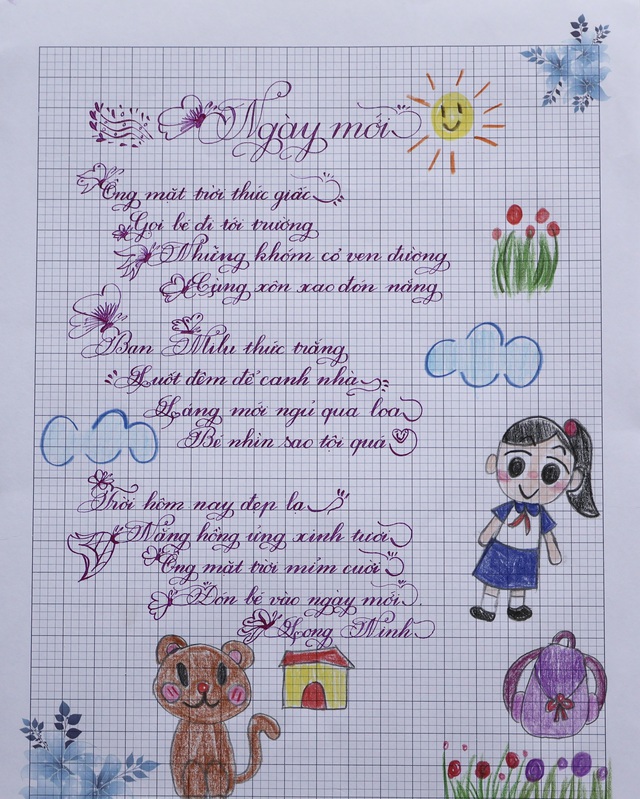 Ngày mới
Ông mặt trời thức giấc
Gọi bé đi tới trường
Những khóm cỏ ven đường
Cùng xôn xao đón nắng
Bạn Milu thức trắng
Suốt đêm để canh nhà
Sáng mới ngủ quá loa
Bé nhìn sao tội quá
Trời hôm nay đẹp lạ
Nắng hồng ửng xinh tươi
Ông mặt trời mỉm cười
Đón bé vào ngày mới.
Long Ninh